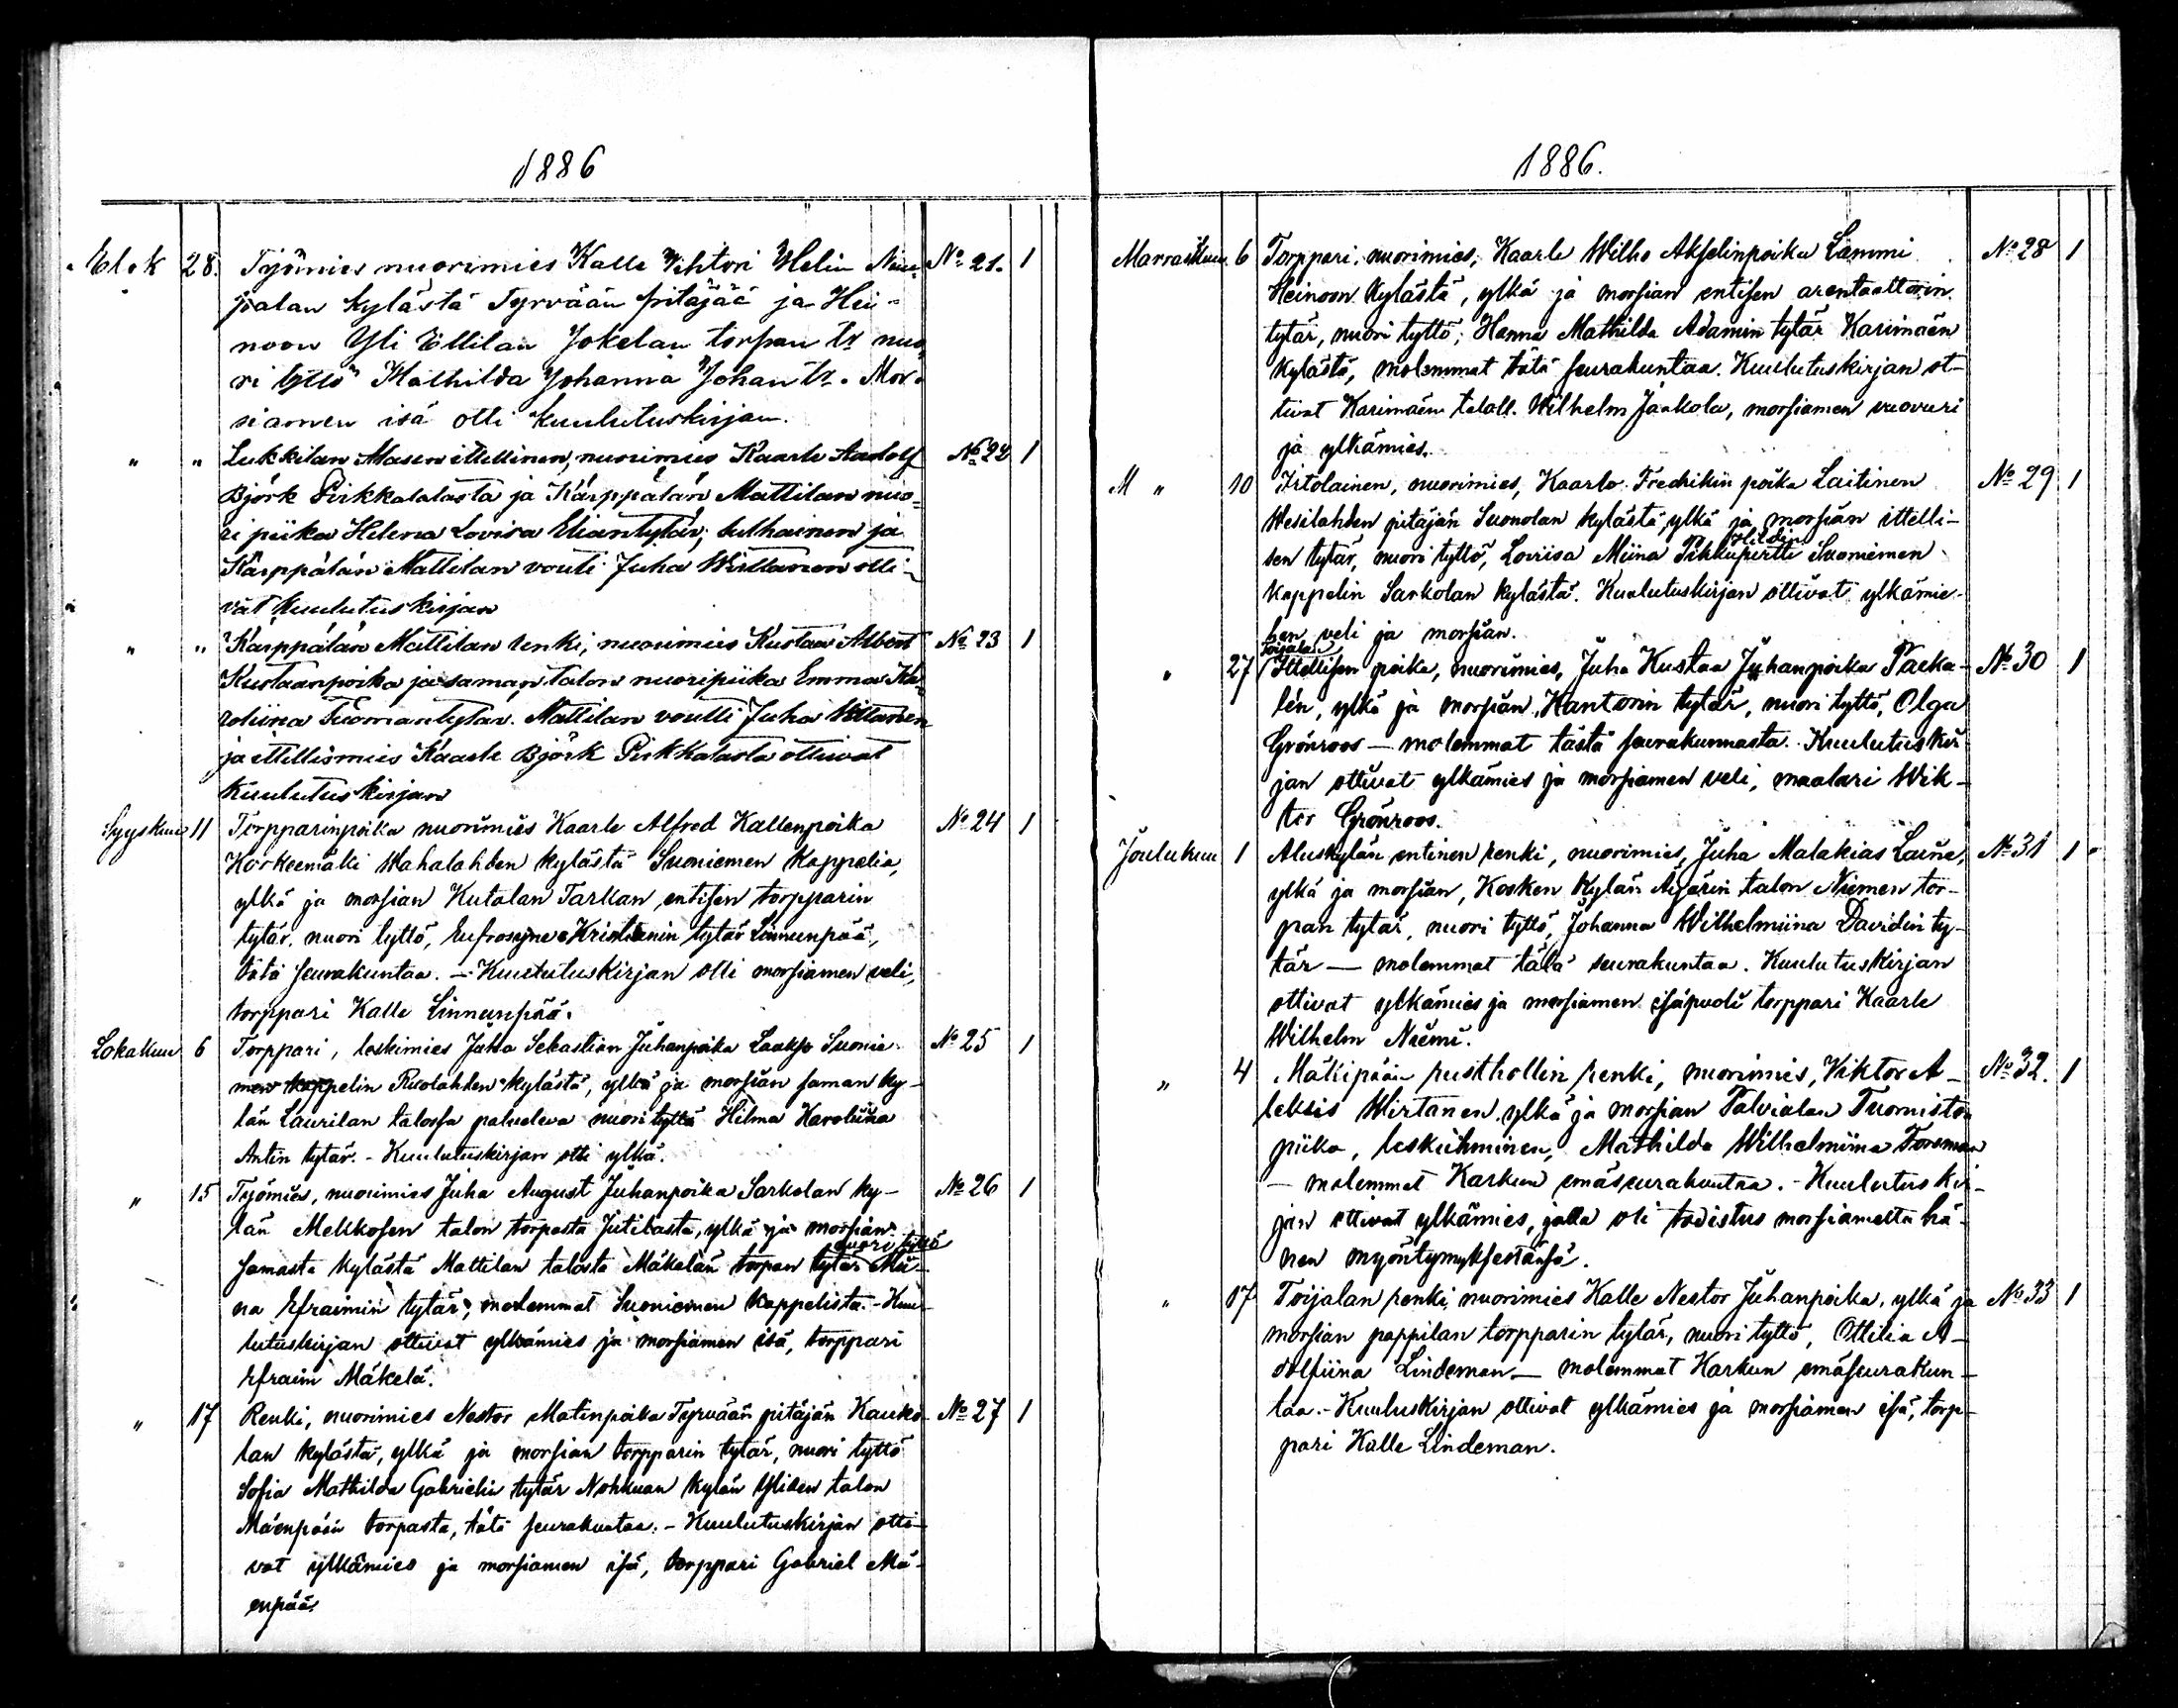 1886
Elok 28. Työmies nuorimies Kalle Vihtori Helin № 21. 1
palan kylästä Tyrvään pitäjää ja Hei-
noon Yli Ellilan Jokelan torpan tr nuo
ri tyttö Mathilda Johanna Johan tr. Mor-
siamen isä otti kuulutuskirjan.
" " Lukkilan Masen ittellinen, nuorimies Kaarle Aadolf № 22 1
Björk Pirkkalalasta ja Kärppälän Mattilan nuo-
ri piika Helena Lovisa Eliantytär; sulhainen ja
Kärppälän Mattilan vouti Juha Wirttanen otti-
vat kuulutuskirjan
" " Kärppälän Mattilan renki, nuorimies Kustaa Albert № 23 1
Kustaanpoika ja saman talon nuoripiika Emma Ka-
roliina Tuomantytär. Mattilan voutti Juha Wittanen
ja ittellismies Kaarle Björk Pirkkalasta ottivat
Kuulutuskirjan
Syyskuu 11 Torpparinpoika nuorimies Kaarle Alfred Kallenpoika № 24 1
Korkeemäki Wahalahden kylästä Suoniemen Kappelia,
ylkä ja morsian Kutalan Tarkan, entisen torpparin
tytär, nuori tyttö, Eufrosyne Kristianin tytär Linnunpää,
tätä seurakuntaa. - Kuulutuskirjan otti morsiamen veli,
torppari Kalle Linnunpää.
Lokakuu 6 Torppari, leskimies Juha Sebastian Juhanpoika Laakso Suonie- № 25 1
men kappelin Ruolahden kylästä, ylkä ja morsian saman ky-
län Laurilan talossa palveleva nuori tyttö Hilma Karoliina
Antin tytär. - Kuulutuskirjan otti ylkä.
" 15 Työmies, nuorimies Juha August Juhanpoika Sarkolan ky- № 26 1
län Mellkosen talon torpasta Jutilasta, ylkä ja morsian
nuori tyttö
samasta kylästä Mattilan talosta Mäkelän torpan tytär Mii-
na Efraimin tytär; molemmat Suoniemen kappelista. - Kuu-
lutuskirjan ottivat ylkämies ja morsiamen isä, torppari
Efraim Mäkelä.
" 17 Renki, nuorimies Nestor Matinpoika Tyrvään pitäjän Kauko- № 27 1
lan kylästä, ylkä ja morsian torpparin tytär, nuori tyttö
Sofia Mathilda Gabrielin tytär Nohkuan kylän Yliden talon
Mäenpään torpasta, tätä seurakuntaa. - Kuulutuskirjan otti-
vat ylkämies ja morsiamen isä, torppari Gabriel Mä-
enpää.
1886.
Marraskuu 6 Torppari, nuorimies, Kaarle Wilho Akselinpoika Lammi № 28 1
Heinoon kylästä, ylkä ja morsian entisen arentaattorin
tytär, nuori tyttö; Hanna Mathilda Adamin tytär Karimäen
kylästä, molemmat tätä seurakuntaa. Kuulutuskirjan ot-
tivat Karimäen taloll. Wilhelm Jaakola, morsiamen vuovuri
ja ylkämies.
M " 10 Irtolainen, nuorimies, Kaarlo Fredrikin poika Laitinen № 29 1
Wesilahden pitäjän Suonolan kylästä, ylkä ja morsian ittelli-
Hildin
sen tytär, nuori tyttö, Loviisa Miina Pikkupertti Suoniemen
kappelin Sarkolan kylästä. Kuulutuskirjan ottivat ylkämie-
hen veli ja morsian.
Toijalan
" 27 Ittellisen poika, nuorimies, Juha Kustaa Juhanpoika Packa- № 30 1
lén, ylkä ja morsian, Kantorin tytär, nuori tyttö, Olga
Grönroos - molemmat tästä seurakunnasta. Kuulutuskir
jan ottivat ylkämies ja morsiamen veli, maalari Wik-
tor Grönroos.
Joulukuu 1 Aluskylän entinen renki, nuorimies, Juha Malakias Laine, № 31 1
ylkä ja morsian, Kosken kylän Äijärin talon Niemen tor-
pan tytär, nuori tyttö, Johanna Wilhelmiina Davidin ty-
tär - molemmat tätä seurakuntaa. Kuulutuskirjan
ottivat ylkämies ja morsiamen isäpuoli torppari Kaarle
Wilhelm Niemi.
" 4 Mäkipään pusthollin renki, nuorimies, Viktor A- № 32. 1
leksis Wirtanen, ylkä ja morsian Palvialan Tuomiston
piika, leski ihminen, Mathilda Wilhelmiina Forsman
- molemmat Karkun emäseurakuntaa. - Kuulutuskir-
jan ottivat ylkämies, jolla oli todistus morsiamelta hä-
nen myöntymyksestänsä.
" 17 Toijalan renki, nuorimies Kalle Nestor Juhanpoika, ylkä ja № 33 1
morsian pappilan torpparin tytär, nuori tyttö, Ottilia A-
dolfiina Lindeman - molemmat Karkun emäseurakun-
taa. - Kuuluskirjan ottivat ylkämies ja morsiamen isä, torp-
pari Kalle Lindeman.